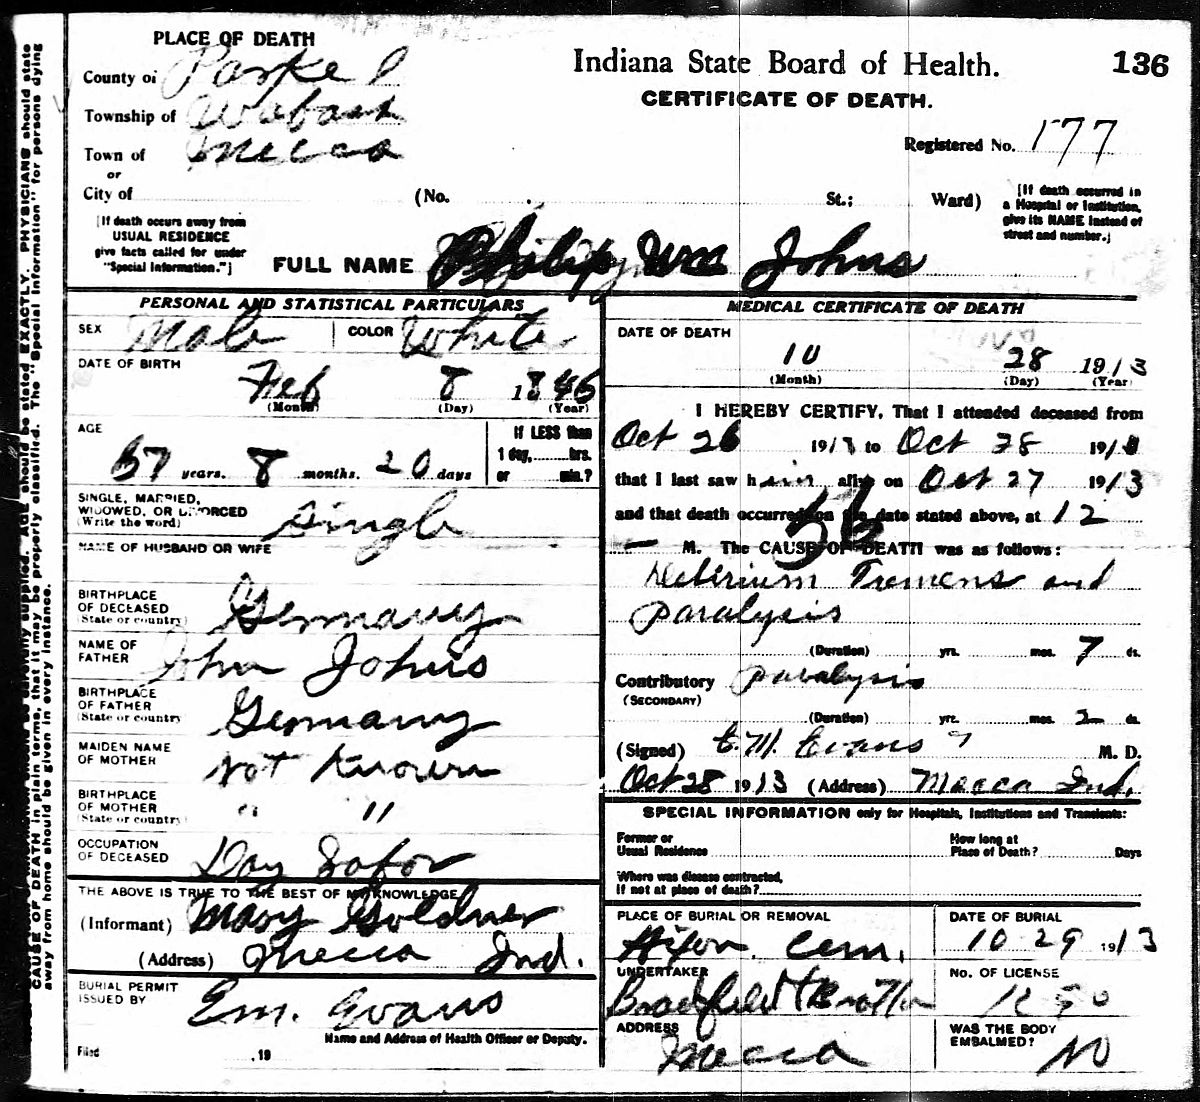 PLACE OF DEATH
County of Parke
Township of Wabash
Town of Mecca
or
City of
(No. St.; Ward)
[If death occurs away from
USUAL RESIDENCE
give facts called for under
"Special Information."]
Indiana State Board of Health.
136
CERTIFICATE OF DEATH.
Registered No. 177
[If death occurred in
a Hospital or Institution,
give its NAME instead of
street and number.]
FULL NAME Philip Wm Johns
PERSONAL AND STATISTICAL PARTICULARS
SEX Male COLOR White
DATE OF BIRTH
Feb 8 1846
(Month) (Day) (Year)
AGE
67 years. 8 months. 20 days
If LESS than
1 day, hrs.
or min.?
SINGLE, MARRIED,
WIDOWED, OR DIVORCED
(Write the word) Single
NAME OF HUSBAND OR WIFE
BIRTHPLACE
OF DECEASED
(State or country) Germany
NAME OF
FATHER John Johns
BIRTHPLACE
OF FATHER
(State or country) Germany
MAIDEN NAME
OF MOTHER Not Known
BIRTHPLACE
OF MOTHER
(State or country) " "
OCCUPATION
OF DECEASED Day Labor
THE ABOVE IS TRUE TO THE BEST OF MY KNOWLEDGE
(Informant) Mary Goldner
(Address) Mecca Ind.
BURIAL PERMIT
ISSUED BY Em. Evans
Name and Address of Health Officer or Deputy.
Filed , 19
MEDICAL CERTIFICATE OF DEATH
DATE OF DEATH
10 28 1913
(Month) (Day) (Year)
I HEREBY CERTIFY, That I attended deceased from
Oct 26 1913 to Oct 28 191
that I last saw him alive on Oct 27 1913
and that death occurred on the date stated above, at 12
56
M. The CAUSE OF DEATH was as follows:
Delirium Tremens and
paralysis
(Duration) yrs. mos. 7 ds.
Contributory paralysis
(SECONDARY)
(Duration) yrs. mos. 2 ds.
(Signed) E.M. Evans M. D.
Oct 28 1913 (Address) Mecca Ind.
SPECIAL INFORMATION only for Hospitals, Institutions and Transients:
Former or
Usual Residence
How long at
Place of Death? Days
Where was disease contracted,
If not at place of death?
PLACE OF BURIAL OR REMOVAL
Hixon Cem.
DATE OF BURIAL
10 29 1913
UNDERTAKER
Bradfield
No. OF LICENSE
ADDRESS
Mecca
WAS THE BODY
EMBALMED? NO
CAUSE OF DEATH in plain terms, that it may be properly classified. The "Special Information" for persons dying
away from home should be given in every instance.